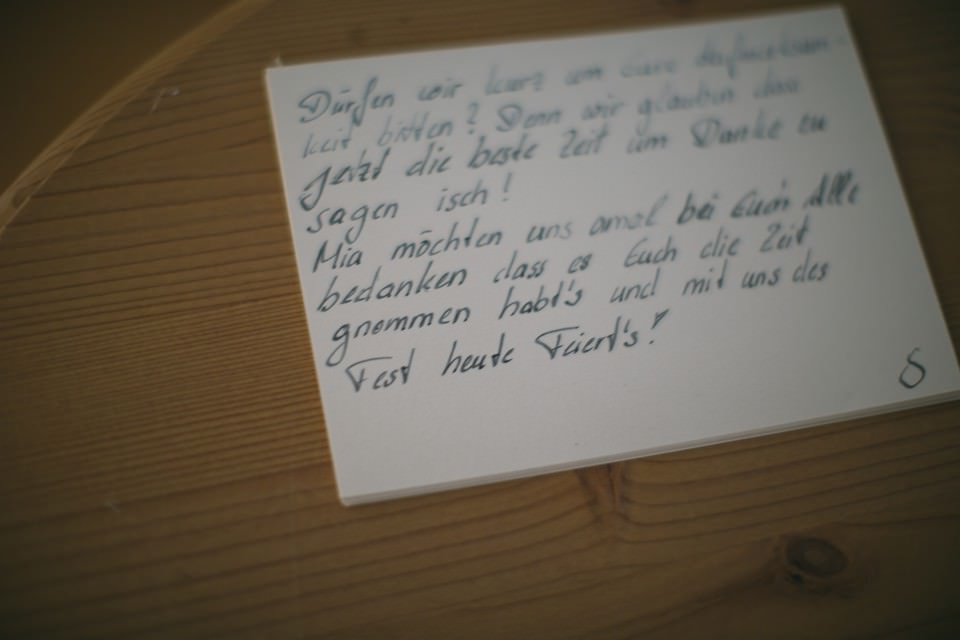 Dürfen wir kurz um eure Aufmerksam-
keit bitten? Denn wir glauben dass
jetzt die beste Zeit um Danke zu
sagen isch!
Mia möchten uns amol bei Euch Alle
bedanken dass es Euch die Zeit
gnommen habt's und mit uns des
Fest heute Feiert's!